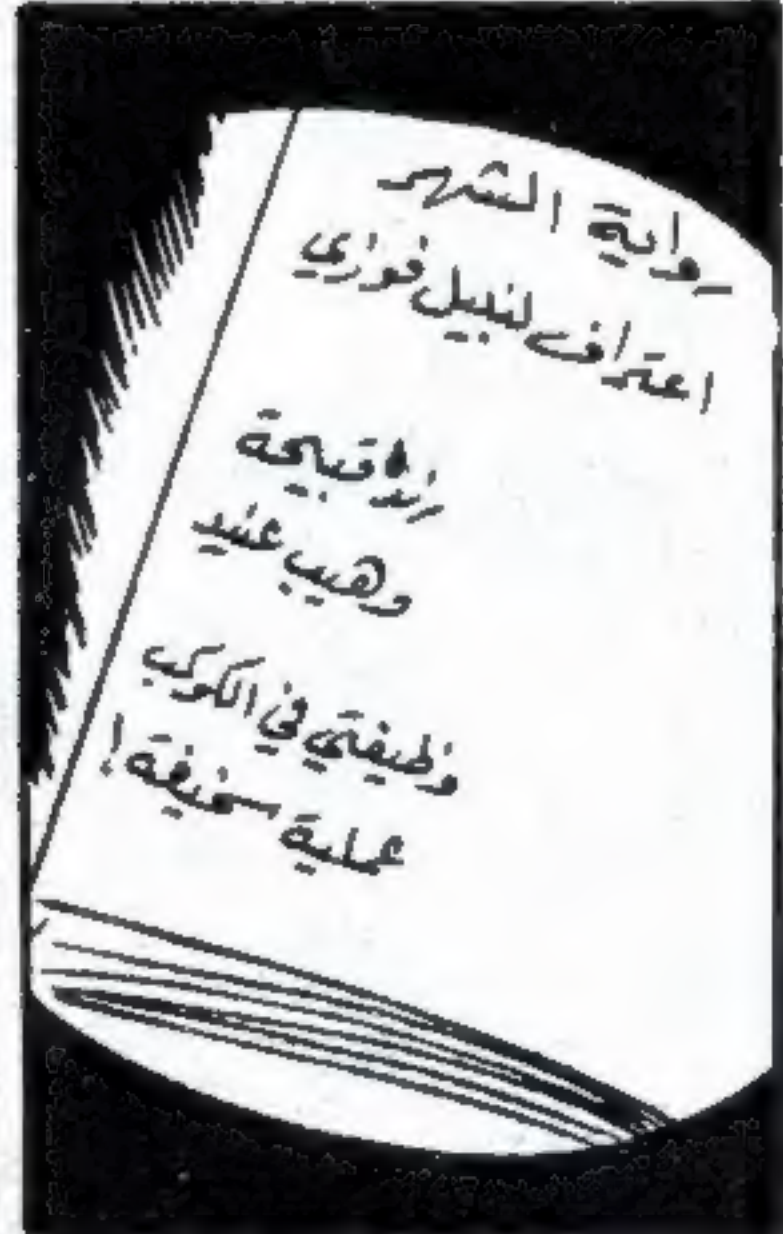 رواية الشهر
اعتراف لنبيل فوزي
رندا قبيحة
وهيب عنيد
وظيفتي في الكوكب
عملية سخيفة!